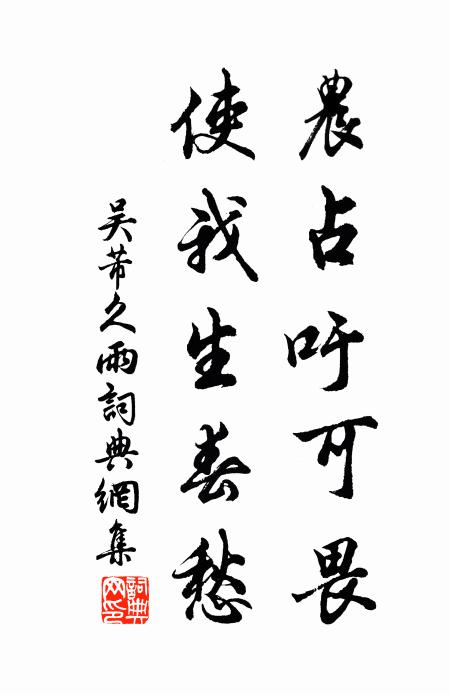 農占吁可畏
使我生春愁
吴芾久雨詞典網集
詞典
网印